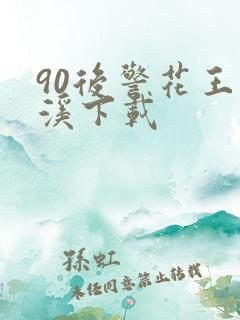 90後警花王
溪下載
孫虹
未任同意禁止转载